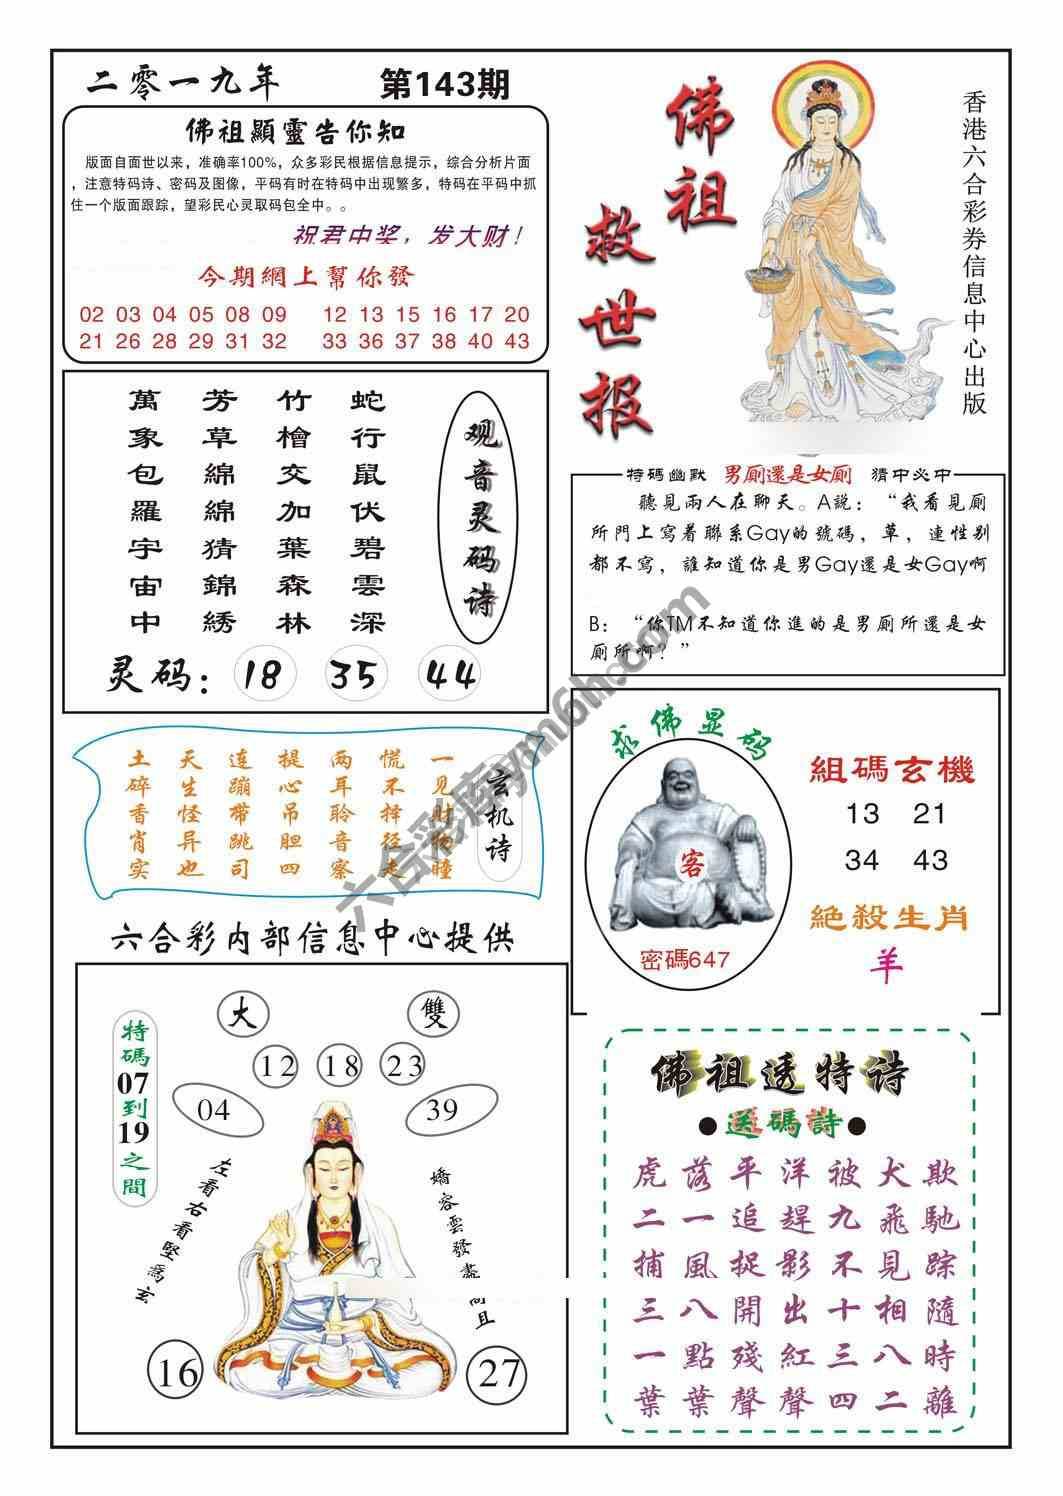 二零一九年
第143期
佛祖顯靈告你知
版面自面世以来，准确率100%，众多彩民根据信息提示，综合分析片面
，注意特码诗、密码及图像，平码有时在特码中出现繁多，特码在平码中抓
住一个版面跟踪，望彩民心灵取码包全中。。
祝君中奖，发大财！
今期網上幫你發
02 03 04 05 08 09 12 13 15 16 17 20
21 26 28 29 31 32 33 36 37 38 40 43
佛祖救世报
香港六合彩券信息中心出版
观音灵码诗
蛇行鼠伏碧雲深
竹檜交加葉森林
芳草綿綿猜錦綉
萬象包羅宇宙中
灵码：18 35 44
特碼幽默 男厕還是女厕 猜中必中
聽見兩人在聊天。A説：“我看見厕
所門上寫着聯系Gay的號碼，草，連性别
都不寫，誰知道你是男Gay還是女Gay啊
B：“你TM不知道你進的是男厕所還是女
厕所啊？”
玄机诗
一见财物瞳
慌不择径走
两耳聆音察
提心吊胆四
连蹦带跳司
天生怪异也
土碎香肖实
求佛显码
客
密碼647
組碼玄機
13 21
34 43
絶殺生肖
羊
六合彩内部信息中心提供
大
雙
12
18
23
04
39
特碼07到19之間
左看右看堅爲玄
嬌容雲發盡
且
16
27
佛祖透特诗
●送碼詩●
虎落平洋被犬欺
二一追趕九飛馳
捕風捉影不見踪
三八開出十相隨
一點殘紅三八時
葉葉聲聲四二離
六合彩库ym6h.com